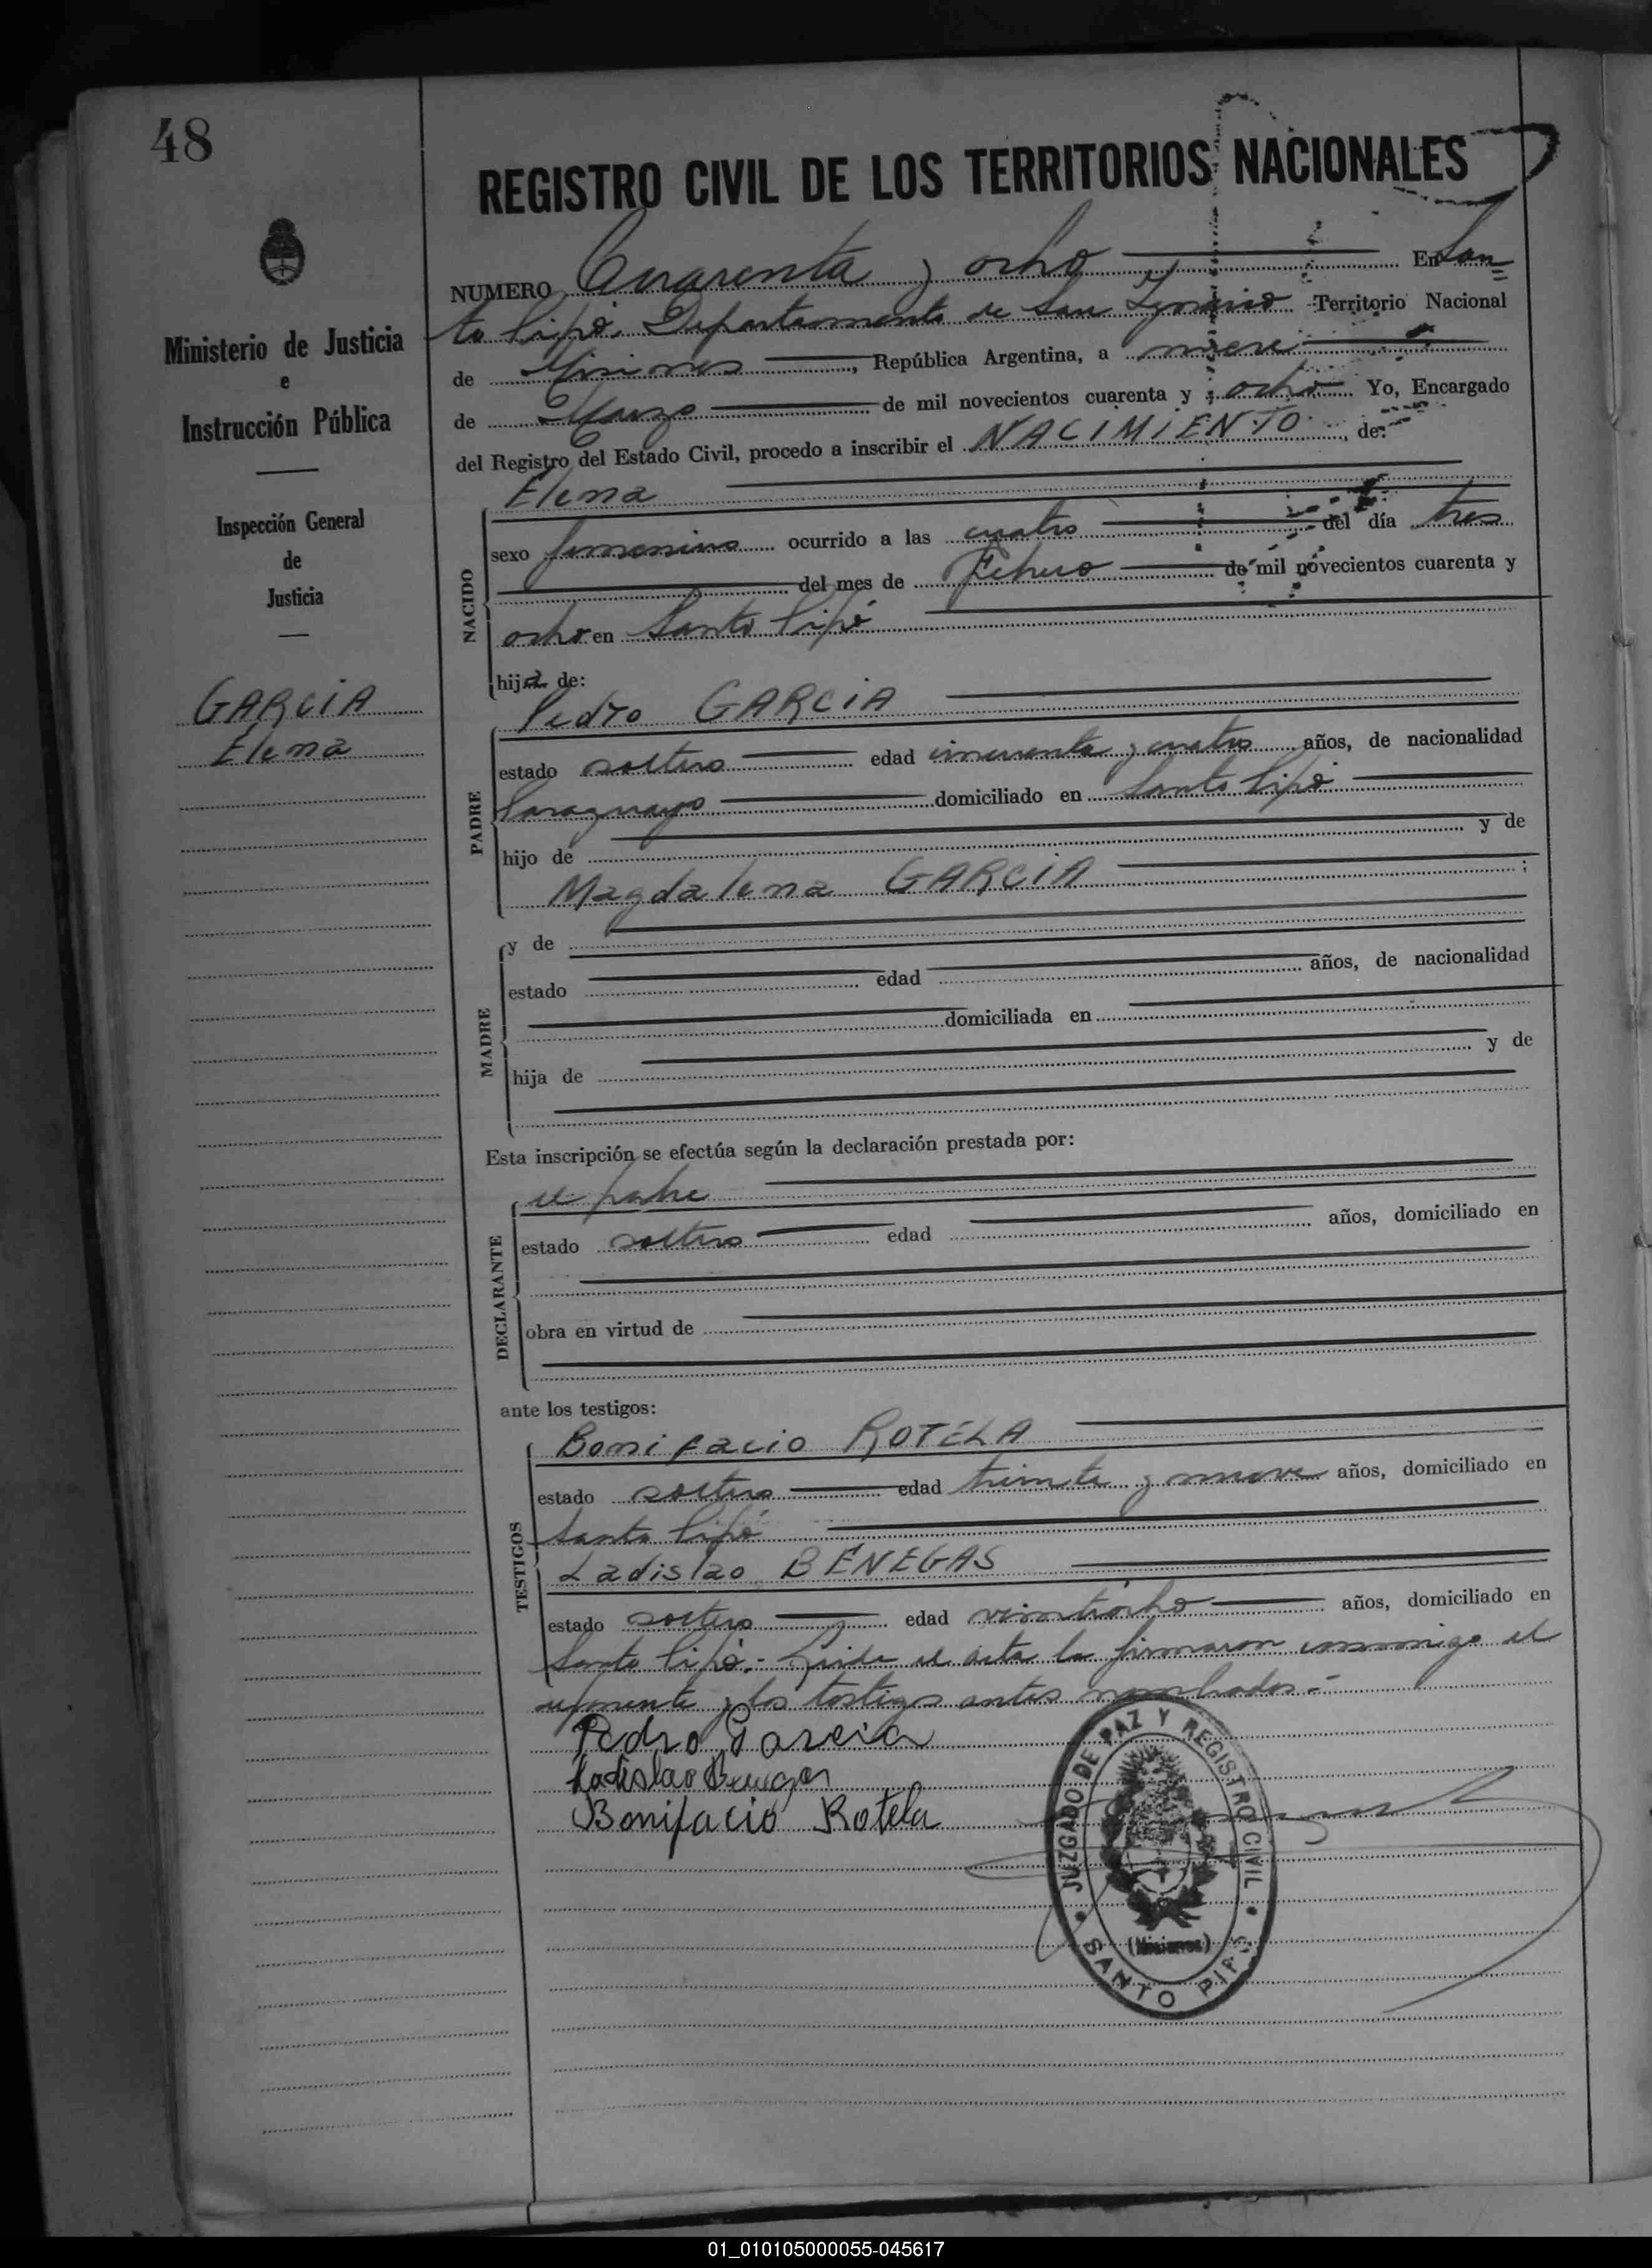 48
REGISTRO CIVIL DE LOS TERRITORIOS NACIONALES
NUMERO Cuarenta y ocho En San=
to Pipó, Departamento de San Ignacio Territorio Nacional
de Misiones, República Argentina, a nueve
de Marzo de mil novecientos cuarenta y ocho Yo, Encargado
del Registro del Estado Civil, procedo a inscribir el NACIMIENTO, de:
Elena
Ministerio de Justicia
e
Instrucción Pública
Inspección General
de
Justicia
GARCIA
Elena
NACIDO
sexo femenino ocurrido a las cuatro del día tres
del mes de Febrero de mil novecientos cuarenta y
ocho en Santo Pipó
hija de:
PADRE
Pedro GARCIA
estado soltero edad cincuenta y cuatro años, de nacionalidad
Paraguayo domiciliado en Santo Pipó
hijo de y de
Magdalena GARCIA ;
MADRE
y de
estado edad años, de nacionalidad
domiciliada en
hija de y de
Esta inscripción se efectúa según la declaración prestada por:
DECLARANTE
el padre
estado soltero edad años, domiciliado en
obra en virtud de
ante los testigos:
TESTIGOS
Bonifacio ROTELA
estado soltero edad treinta y nueve años, domiciliado en
Santo Pipó
Ladislao BENEGAS
estado soltero edad veintiocho años, domiciliado en
Santo Pipó.- Leida el acta la firmaron conmigo el
exponente y los testigos antes nombrados.-
Pedro Garcia
Ladislao Benegas
Bonifacio Rotela
JUZGADO DE PAZ Y REGISTRO CIVIL
(Misiones)
SANTO PIPO
01_010105000055-045617